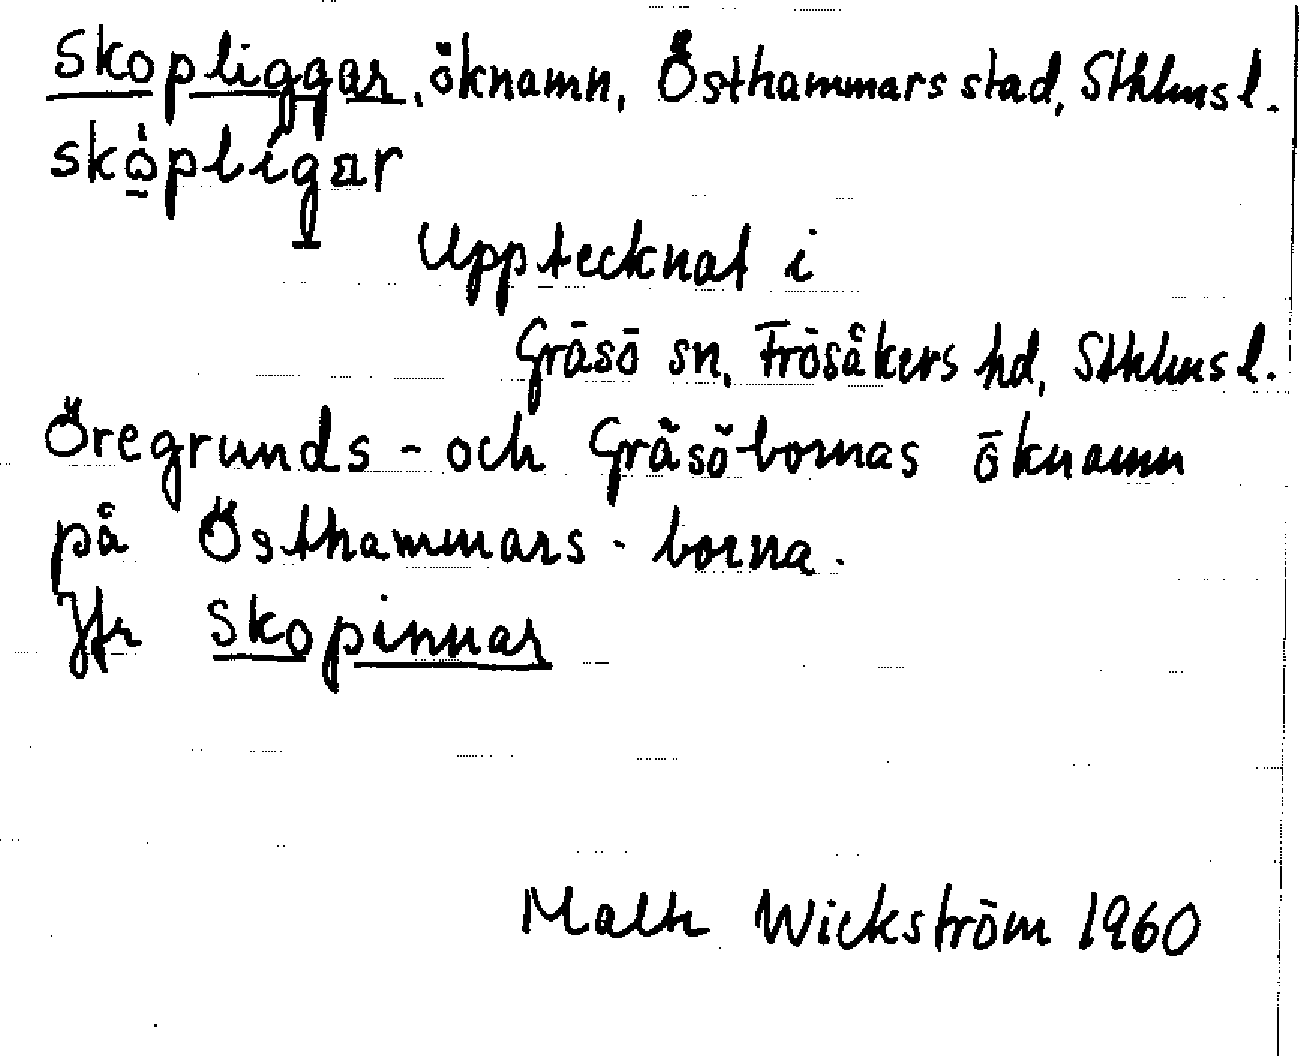 Skopliggar, öknamn, Östhammars stad, Sthlms l.
skòpligar
Upptecknat i
Gräsö sn, Frösåkers hd, Sthlms l.
Öregrunds- och Gräsö-bornas öknamn
på Östhammars-borna.
Jfr Skopinnar
Malte Wickström 1960